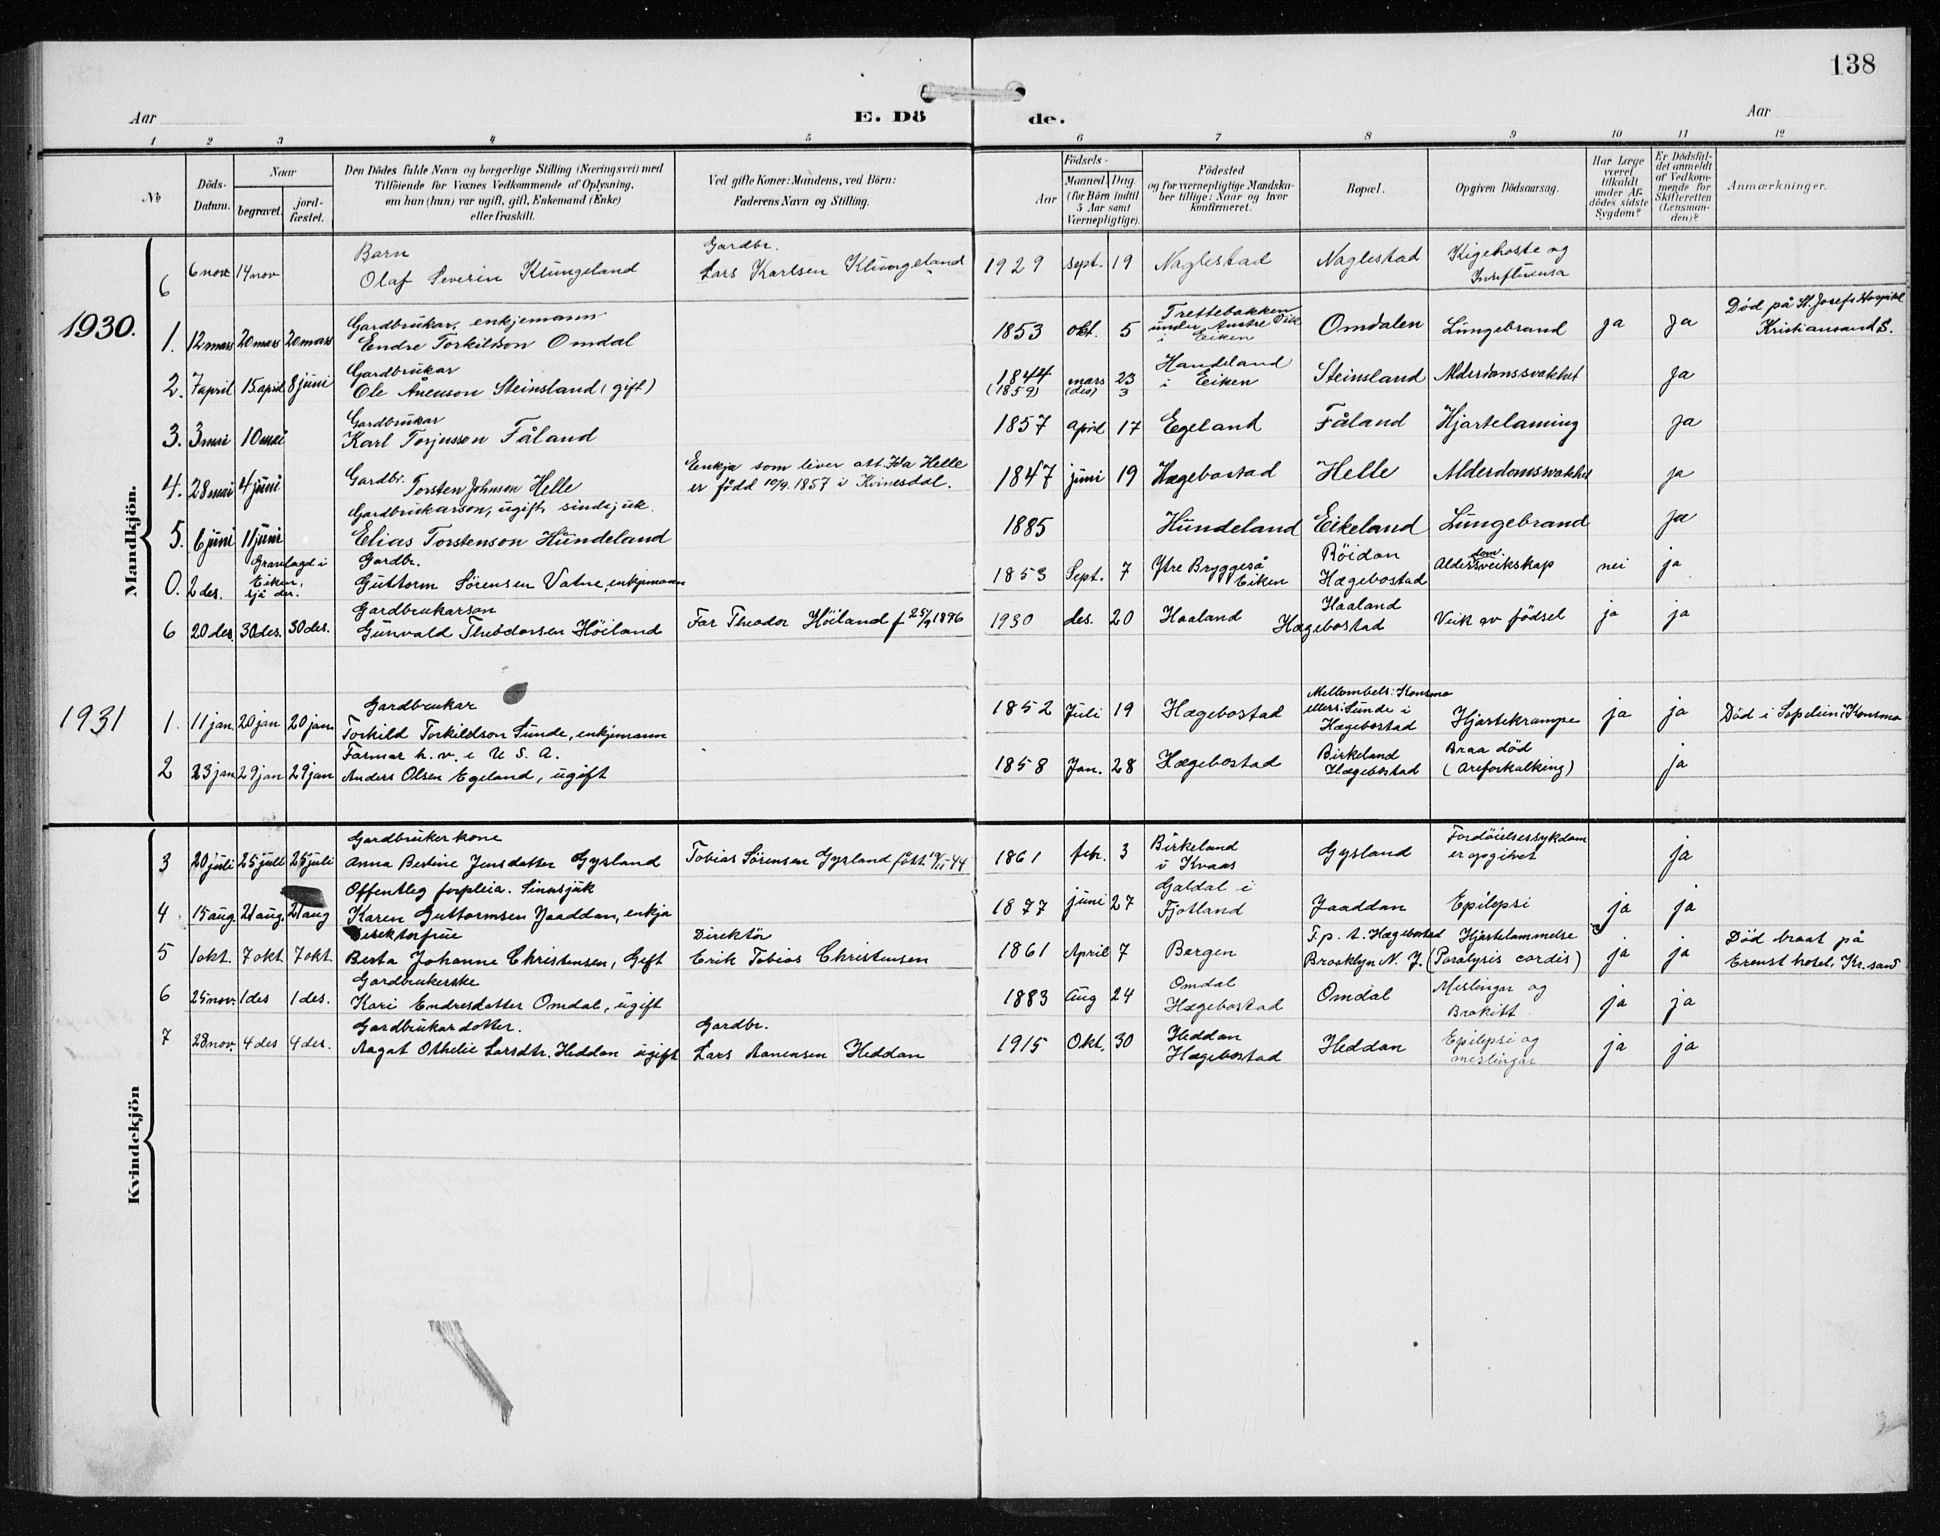 138
Aar E. Dö de. Aar
1 2 3 4 5 6 7 8 9 10 11 12
No
Döds-Datum.
Naar
begravet.
jord-fæstet.
Den Dödes fulde Navn og borgerlige Stilling (Næringsvei) med
Tilföiende for Voxnes Vedkommende af Oplysning,
om han (hun) var ugift, gift, Enkemand (Enke)
eller fraskilt.
Ved gifte Koner: Mandens, ved Börn:
Faderens Navn og Stilling.
Födsels-
Aar
Maaned Dag
(for Börn indtil
5 Aar samt
Værnepligtige).
Födested
og for værnepligtige Mandska-
ber tillige: Naar og hvor
konfirmeret.
Bopæl.
Opgiven Dödsaarsag.
Har Læge
været
tilkaldt
under Af-
dödes sidste
Sygdom?
Er Dödsfal-
det anmeldt
af Vedkom-
mende for
Skifteretten
(Lensman-
den)?
Anmærkninger.
Mandkjön.
6 6 nov. 14 nov Barn
Olaf Severin Klungeland Gardbr.
Lars Karlsen Klungeland 1929 sept. 19 Naglestad Naglestad Kigehoste og
Influensa
1930.
1. 12 mars 20 mars 20 mars Gardbrukar, enkjemann
Endre Torkildson Omdal 1853 okt. 5 Trettebakken
under Austre
i Eiken Omdalen Lungebrand ja ja Död på St. Josefs Hospital
Kristiansand S.
2. 7 april 15 april 8 juni Gardbrukar
Ole Ånenson Steinsland (gift) 1844 mars 23
(1859) (des) 3 Handeland
i Eiken Steinsland Alderdomssvakhet ja
3. 3 mai 10 mai Gardbrukar
Karl Torjusson Fåland 1857 april 17 Egeland Fåland Hjartelaming ja
4. 28 mai 4 juni Gardbr.
Torsten Johnson Helle Enkja som liver att Ida Helle
er född 10/9. 1857 i Kvinesdal. 1847 juni 19 Hægebostad Helle Alderdomssvakhet ja
5. 6 juni 11 juni Gardbrukarson, ugift, sindsjuk.
Elias Torstenson Hundeland 1885 Hundeland Eikeland Lungebrand ja
0. 2 des. Gravlagd i
Eiken.
sjå der. Gardbr.
Guttorm Sörensen Vatne, enkjemann 1853 Sept. 7 Ytre Bryggeså
Eiken Röidan
Hægebostad Alderdomsveikskap nei ja
6 20 des. 30 des. 30 des. Gardbrukarson
Gunvald Theodorsen Höiland Far Theodor Höiland f 25/9 1896 1930 des. 20 Haaland Haaland
Hægebostad Veik av födsel ja ja
1931
1. 11 jan. 20 jan 20 jan. Gardbrukar
Torkild Torkildson Sunde, enkjemann 1852 Juli 19 Hægebostad Mellombels: Konsmo
ellers: Sunde i
Hægebostad Hjartekrampe ja ja Död i Konsmo
2 23 jan 29 jan 29 jan Farmar h. v. i U. S. A.
Anders Olsen Egeland, ugift 1858 Jan. 28 Hægebostad Birkeland
Hægebostad Braa död
(Areforkalking) ja
Kvindekjön
3 20 juli 25 juli 25 juli Gardbrukerkone
Anna Bertine Jensdatter Gysland Tobias Sörensen Gysland 1861 feb. 3 Birkeland
i Kvaas Gysland Fordöielsessykdom
er opgivet ja
4 15 aug. 21 aug. 21 aug Offentleg forpleia. Sinnsjuk
Karen Guttormsen Jaaddan, enkja 1877 juni 27 Galdal i
Fjotland Jaaddan Epilepsi ja ja
5 1 okt. 7 okt 7 okt. Direktörfrue
Berta Johanne Christensen, Gift Direktör
Erik Tobias Christensen 1861 April 7 Bergen F. p. t. Hægebostad
Brooklyn N. Y. Hjartelammelse
(Paralysis cordis) ja ja Död braat på
Ernst hotel, Kr.sand
6 25 nov. 1 des 1 des. Gardbrukerske
Kari Endresdatter Omdal, ugift 1883 Aug 24 Omdal
Hægebostad Omdal Meslingar og
Bronkitt ja ja
7 28 nov. 4 des 4 des. Gardbrukardotter.
Aagat Othelie Larsdtr. Heddan ugift Gardbr.
Lars Aanensen Heddan 1915 Okt. 30 Heddan
Hægebostad Heddan Epilepsi og
meslingar ja ja